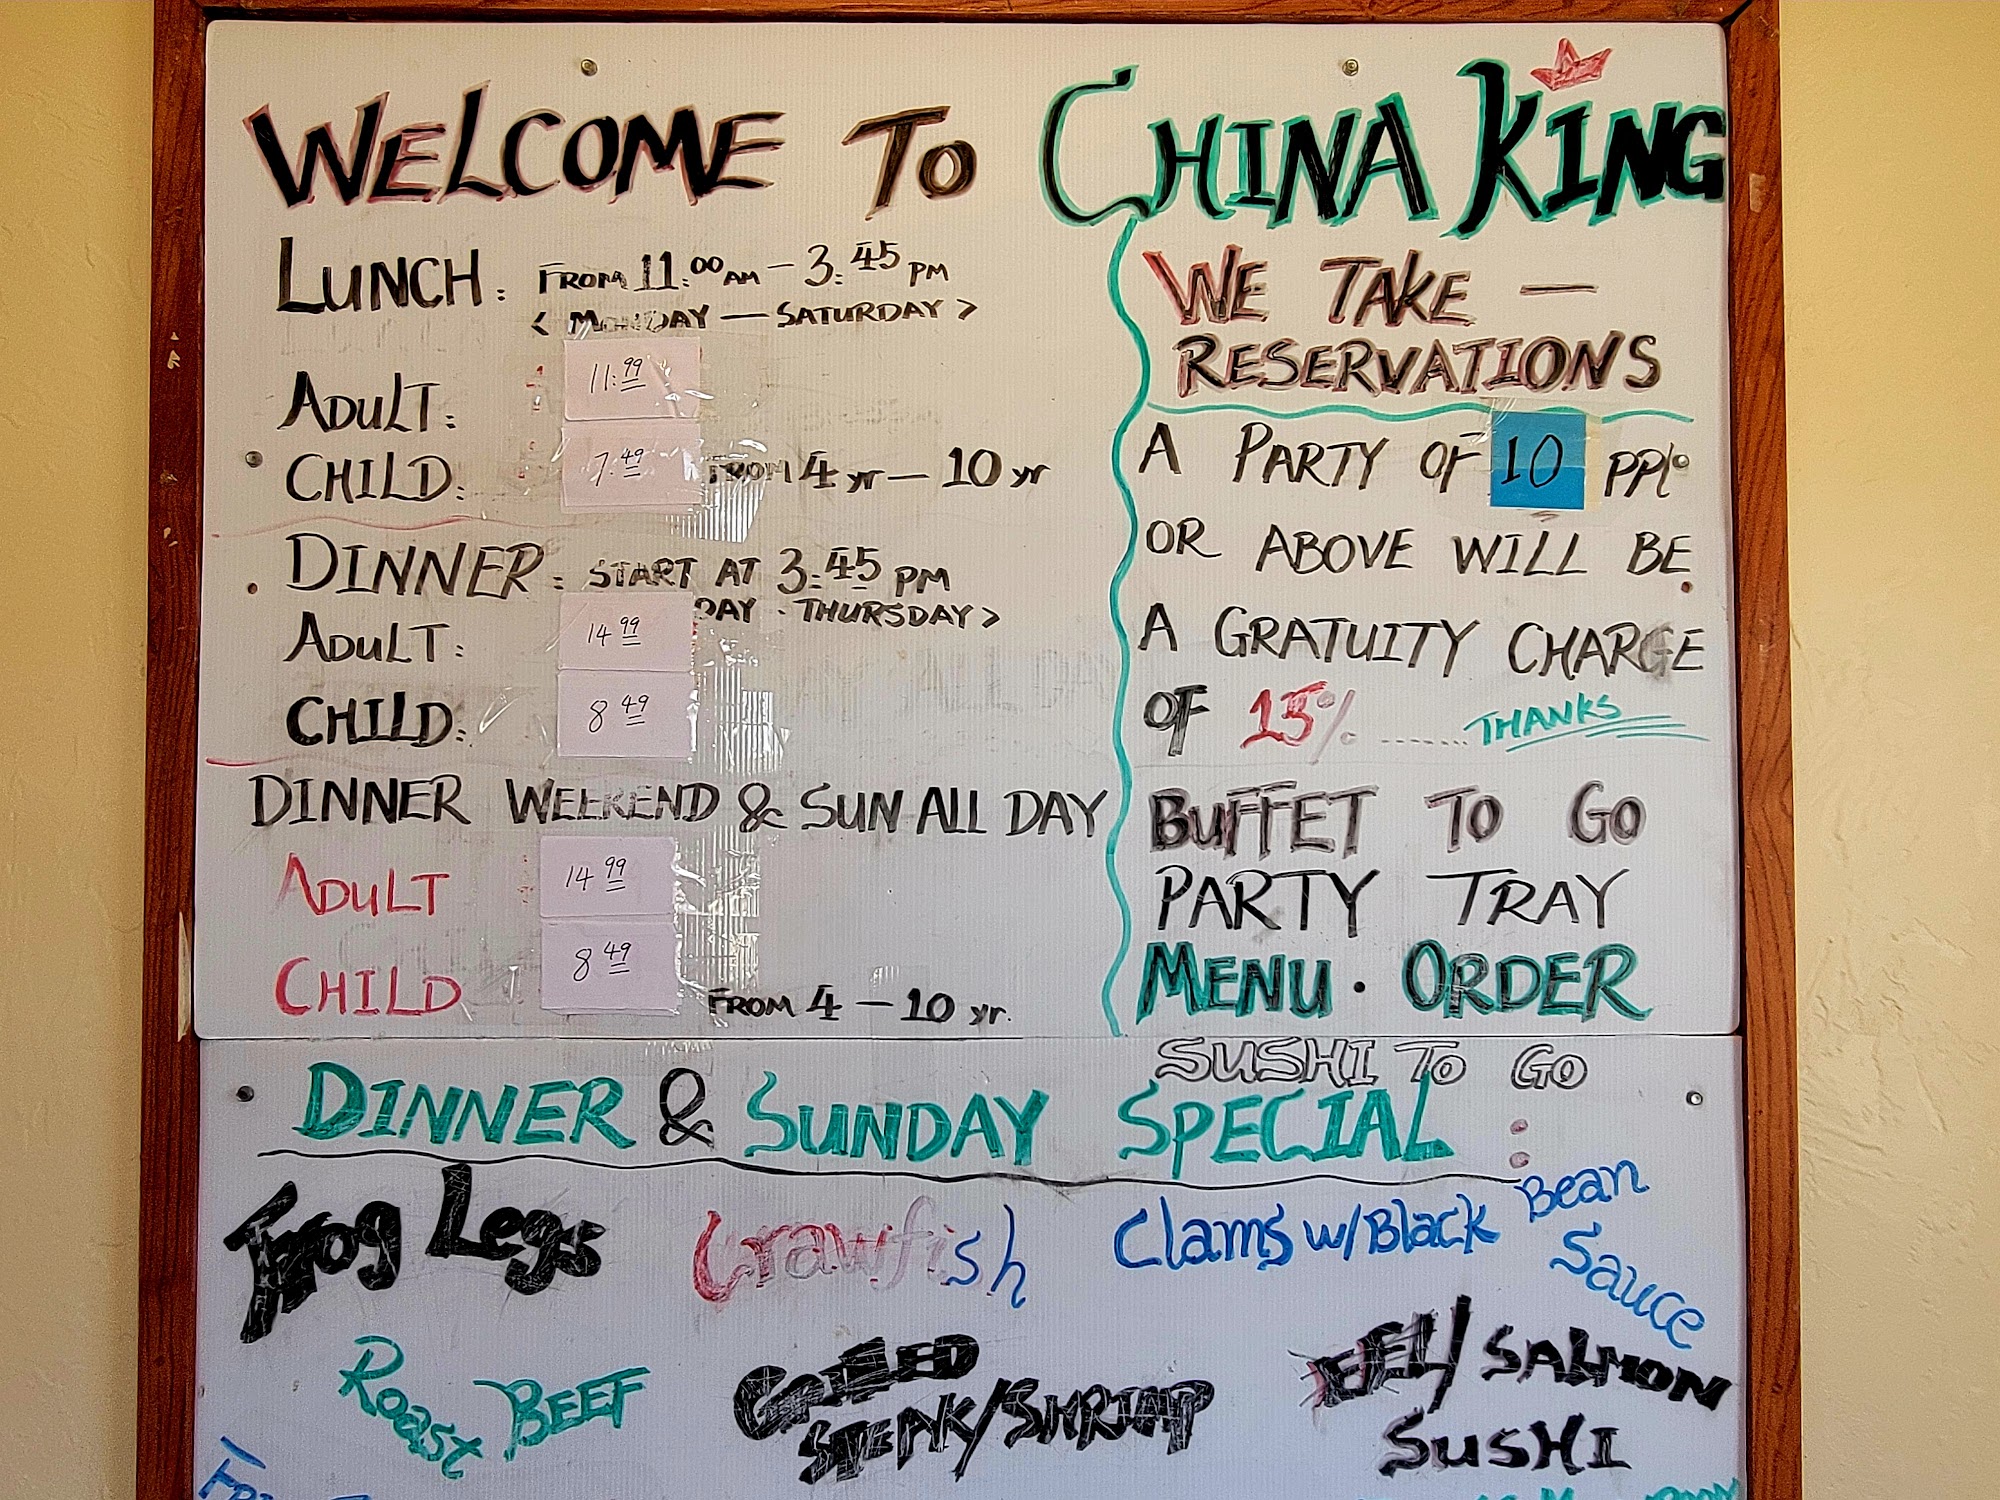 WELCOME TO CHINA KING
LUNCH: FROM 11:00 AM - 3:45 PM
< MONDAY - SATURDAY >
ADULT: 11:99
CHILD: 7.49 FROM 4 yr - 10 yr
DINNER: START AT 3:45 PM
DAY - THURSDAY >
ADULT: 14 99
CHILD: 8 49
DINNER WEEKEND & SUN ALL DAY
ADULT 14 99
CHILD 8 49 FROM 4 - 10 yr.
WE TAKE -
RESERVATIONS
A PARTY OF 10 PPl
OR ABOVE WILL BE
A GRATUITY CHARGE
OF 15% ...... THANKS
BUFFET TO GO
PARTY TRAY
MENU · ORDER
SUSHI TO GO
DINNER & SUNDAY SPECIAL :
Frog Legs
Crawfish
Clams w/Black Bean
Sauce
Roast BEEF
GRILLED
STEAK/SHRIMP
EEL/SALMON
SUSHI